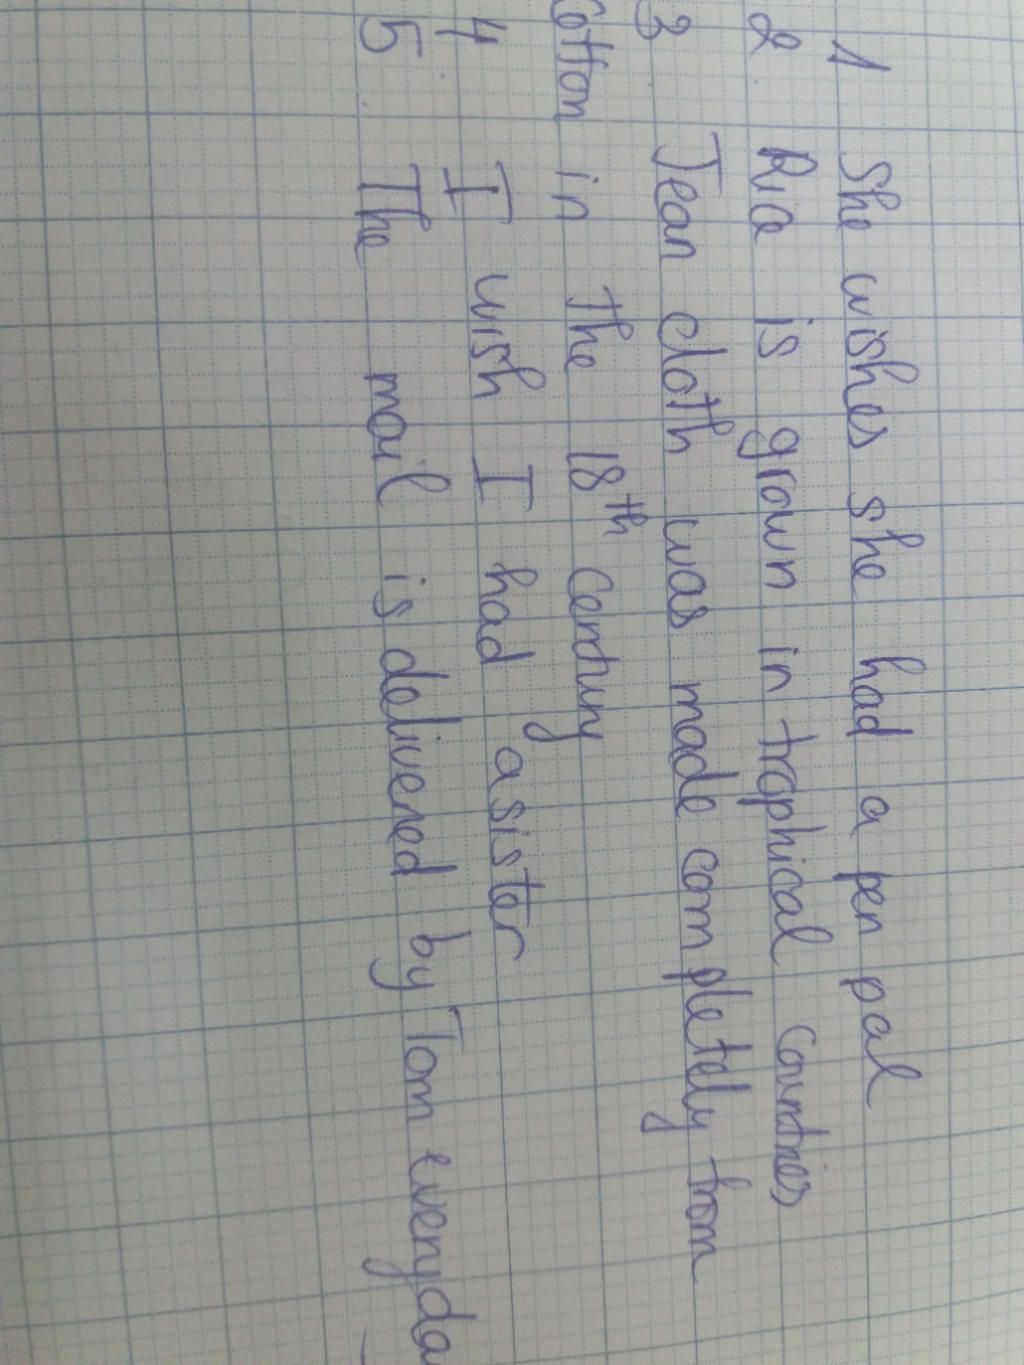 1 She wishes she had a pen pal
2. Rice is grown in trophical countries
3 Jean cloth was made completely from
cotton in the 18th century
4 I wish I had a sister
5. The mail is delivered by Tom everyda